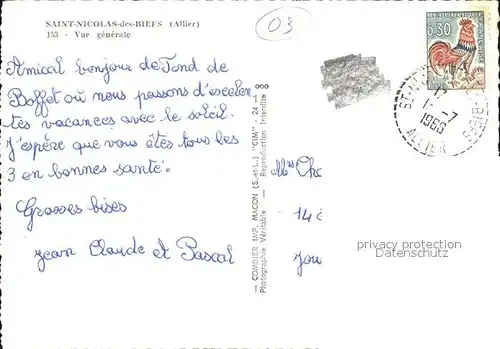 SAINT-NICOLAS-des-BIEFS (Allier)
153 - Vue générale
03
REPUBLIQUE FRANCAISE
0,30
17
1-7
1966
ALLIER
BIEFS
Amical bonjour de Fond de
Boffet où nous passons d'escelen
tes vacances avec le soleil.
J'espère que vous êtes tous les
3 en bonnes santé.
Grosses bises
Jean Claude et Pascal
— COMBIER IMP. MACON (S.-et-L.) "CIM" - 24 —
Photographie Véritable — Reproduction Interdite
Mrs
14
privacy protection
Datenschutz